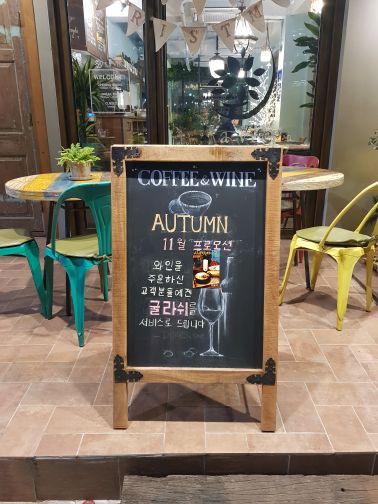 COFFEE & WINE
AUTUMN
11월 프로모션
와인을
주문하신
고객분들에겐
굴라쉬를
서비스로 드립니다
WELCOME
RIST